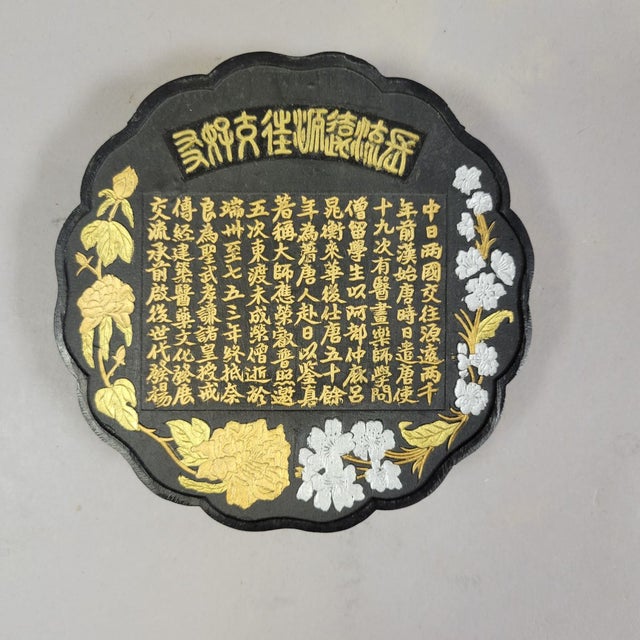 友好交往源遠流長
中日兩國交往源遠兩千
年前漢始唐時日遣唐使
十九次有醫畫樂師學問
僧留學生以阿部仲麻呂
晁衡來華後仕唐五十餘
年為著唐人赴日以鑒真
著稱大師應榮叡普照邀
五次東渡未成榮僧逝於
端州至七五三年終抵奈
良為聖武孝謙諸皇授戒
傳經建築醫藥文化發展
交流承前啟後世代發揚